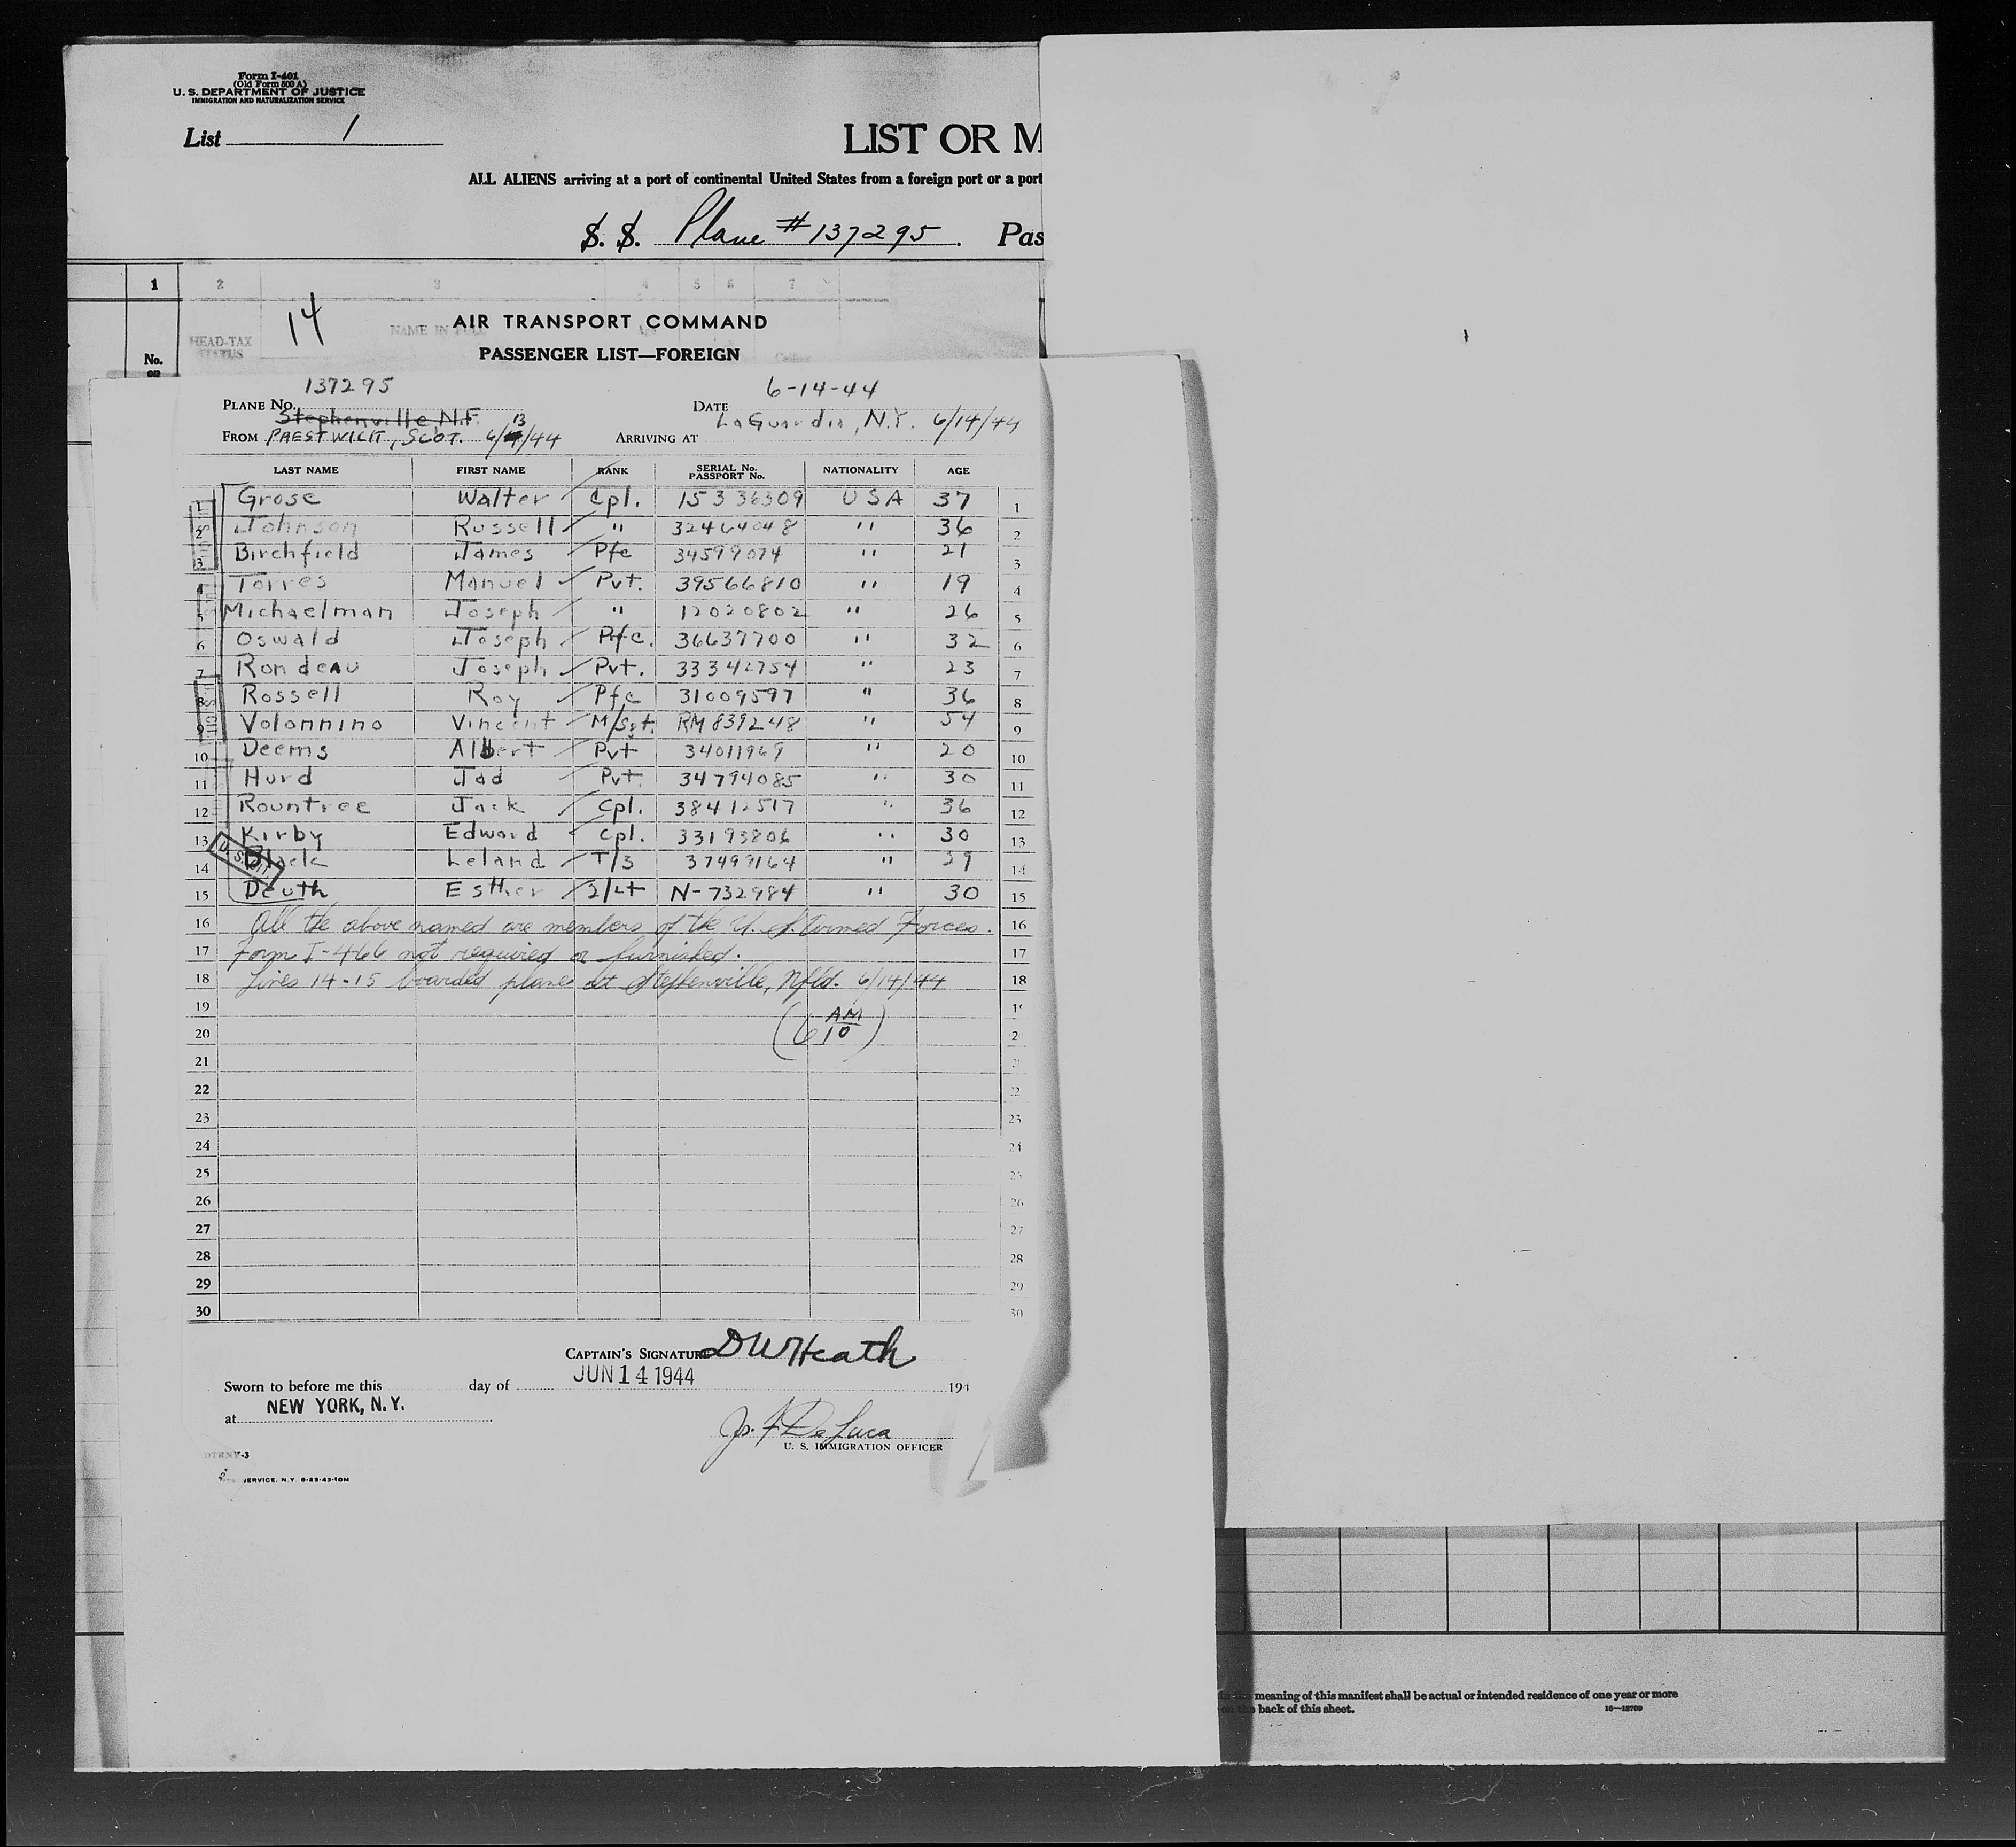 Form I-401
(Old Form 500 A)
U. S. DEPARTMENT OF JUSTICE
IMMIGRATION AND NATURALIZATION SERVICE
List 1
LIST OR M
ALL ALIENS arriving at a port of continental United States from a foreign port or a port
S. S. Plane # 137295. Pas
1 2 3 4 5 6 7
14
HEAD-TAX STATUS
NAME IN FULL
No.
OR
AIR TRANSPORT COMMAND
PASSENGER LIST—FOREIGN
PLANE No. 137295 DATE 6-14-44
Stephenville, N.F.
FROM PRESTWICK, SCOT. 6/13/44 ARRIVING AT LaGuardia, N.Y. 6/14/44
LAST NAME FIRST NAME RANK SERIAL No. PASSPORT No. NATIONALITY AGE
1 Grose Walter Cpl. 15336309 USA 37 1
2 Johnson Russell " 32464048 " 36 2
3 Birchfield James Pfc 34599074 " 21 3
4 Torres Manuel Pvt. 39566810 " 19 4
5 Michaelman Joseph " 12020802 " 26 5
6 Oswald Joseph Pfc. 36637700 " 32 6
7 Rondeau Joseph Pvt. 33342754 " 23 7
8 Rossell Roy Pfc 31009597 " 36 8
9 Volonnino Vincent M/Sgt. RM 839248 " 54 9
10 Deems Albert Pvt 34011969 " 20 10
11 Hurd Jad Pvt. 34794085 " 30 11
12 Rountree Jack Cpl. 38412517 " 36 12
13 Kirby Edward Cpl. 33193806 " 30 13
14 Black Leland T/3 37499164 " 29 14
15 Deuth Esther 2/Lt N-732984 " 30 15
16 All the above named are members of the U. S. Armed Forces. 16
17 Form I-466 not required or furnished. 17
18 Lines 14-15 boarded plane at Stephenville, Nfld. 6/14/44 18
19
20 (6 10 AM) 20
21
22
23 23
24 24
25 25
26 26
27 27
28 28
29 29
30 30
CAPTAIN'S SIGNATURE DW Heath
Sworn to before me this day of JUN 14 1944 194
at NEW YORK, N.Y.
Js. F. De Luca
U. S. IMMIGRATION OFFICER
SERVICE, N.Y. 8-23-43-10M
meaning of this manifest shall be actual or intended residence of one year or more
on the back of this sheet.
16—18709